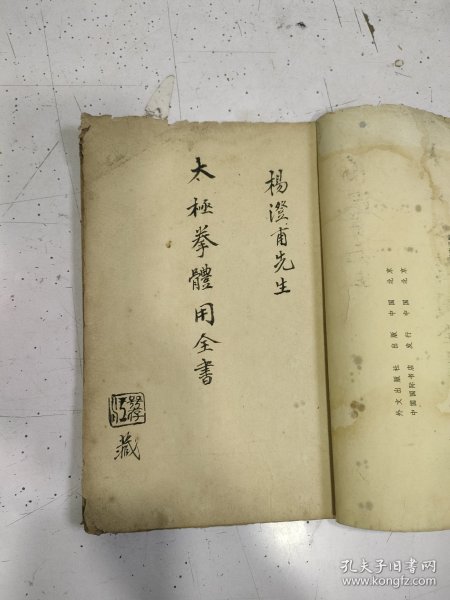 楊澄甫先生
太極拳體用全書
藏
外文出版社 出版 中国 北京
中国国际书店 发行 中国 北京
孔夫子旧书网
www.kongfz.com